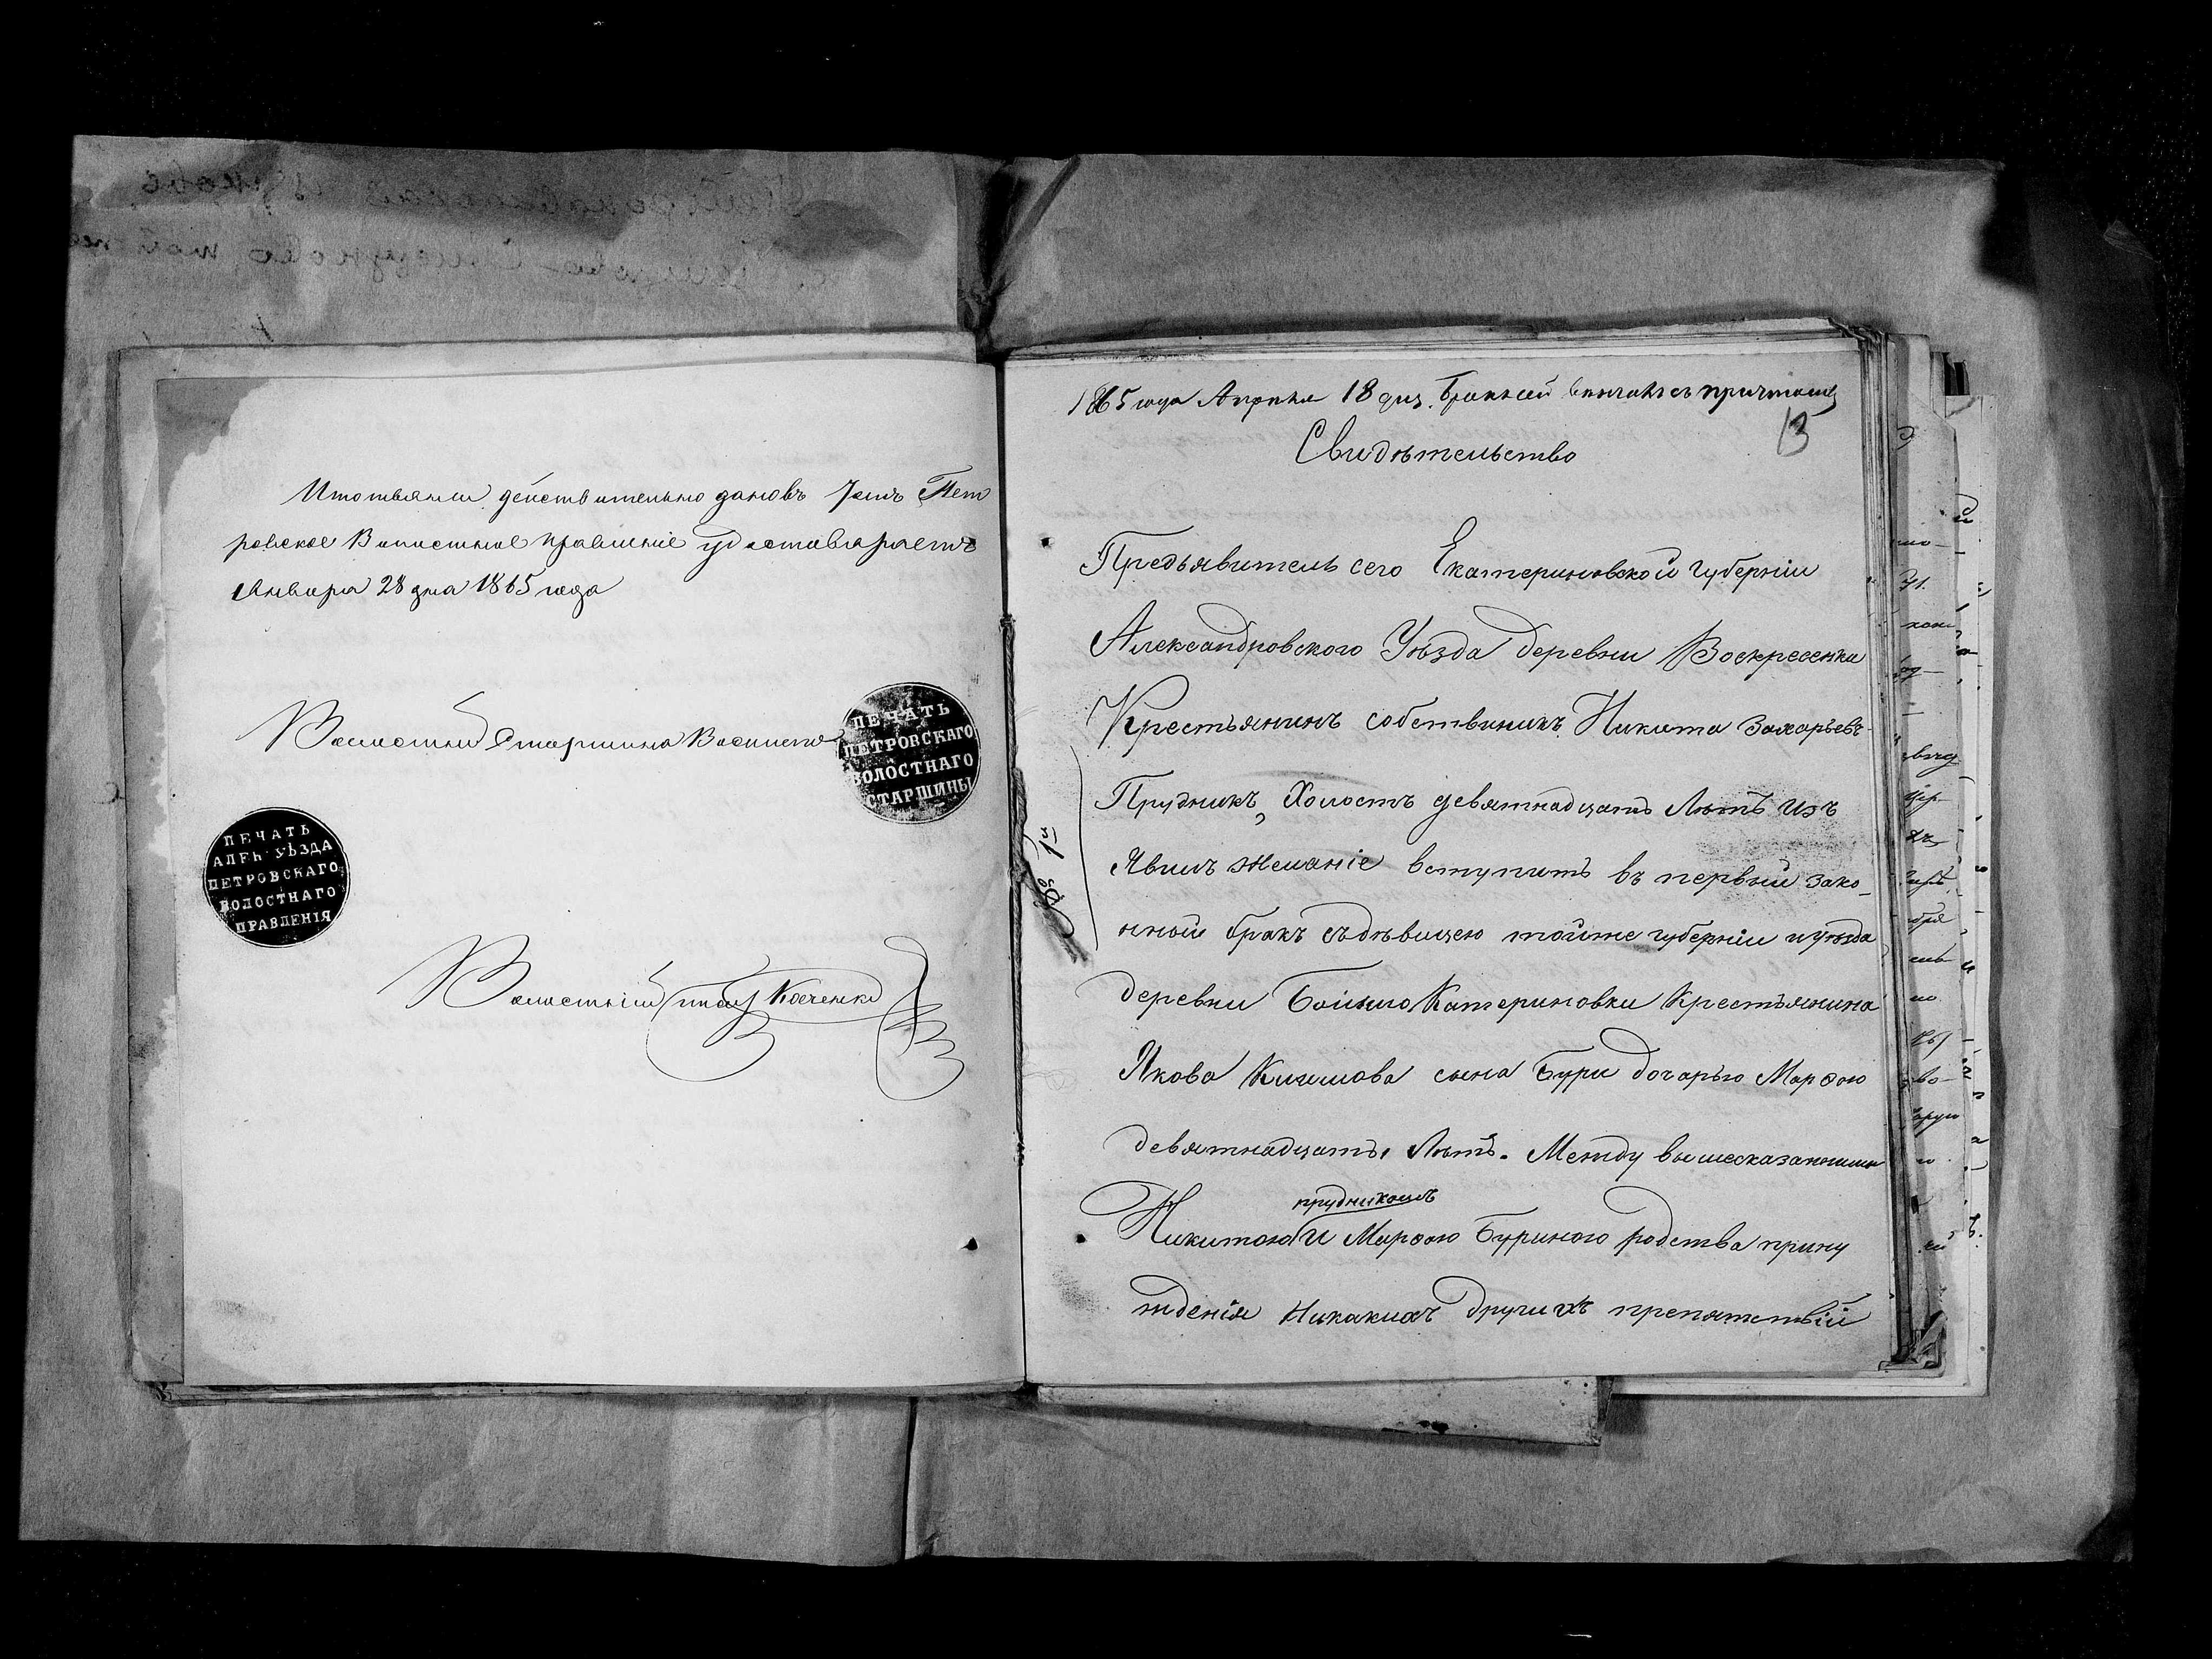 Что твами действительно дановъ томъ Пет
ровское Волостное правленіе удостоверяетъ
Января 28 дня 1865 года
Волостный Старшина
ПЕЧАТЬ
ПЕТРОВСКАГО
ВОЛОСТНАГО
СТАРШИНЫ
ПЕЧАТЬ
АЛЕК УѢЗДА
ПЕТРОВСКАГО
ВОЛОСТНАГО
ПРАВЛЕНІЯ
Волостній
1865 года Апреля 18 дня. Бракъ сей венчанъ съ причтомъ
13
Свидѣтельство
Предъявитель сего Екатериновской губерніи
Александровского Уѣзда деревни Воскресенки
Крестьянинъ собствиникъ Никита Захарьевъ
Прудникъ, Холостъ девятнадцать Лѣтъ Изъ
Явилъ желаніе вступить въ первый зако-
нной бракъ съ дѣвицею тойже губерніи и уѣзда
деревни Катериновки Крестьянина
Якова сына Бури дочарью Марѳою
девятнадцать Лѣтъ. Между вышесказанними
прудникомъ
Никитою И Марѳою Буриного родства прину
жденія Никакихъ другихъ препятствій
№ 1й